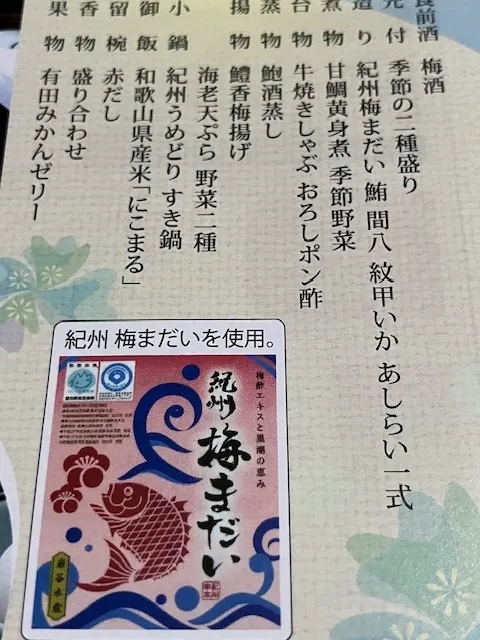 食前酒 梅酒
先付 季節の二種盛り
造り 紀州梅まだい 鮪 間八 紋甲いか あしらい一式
煮物 甘鯛黄身煮 季節野菜
台物 牛焼きしゃぶ おろしポン酢
蒸物 鮑酒蒸し
揚物 鱧香梅揚げ
海老天ぷら 野菜二種
小鍋 紀州うめどり すき鍋
御飯 和歌山県産米「にこまる」
留椀 赤だし
香物 盛り合わせ
果物 有田みかんゼリー
紀州 梅まだいを使用。
梅酢エキスと黒潮の恵み
紀州 梅まだい
岩谷水産